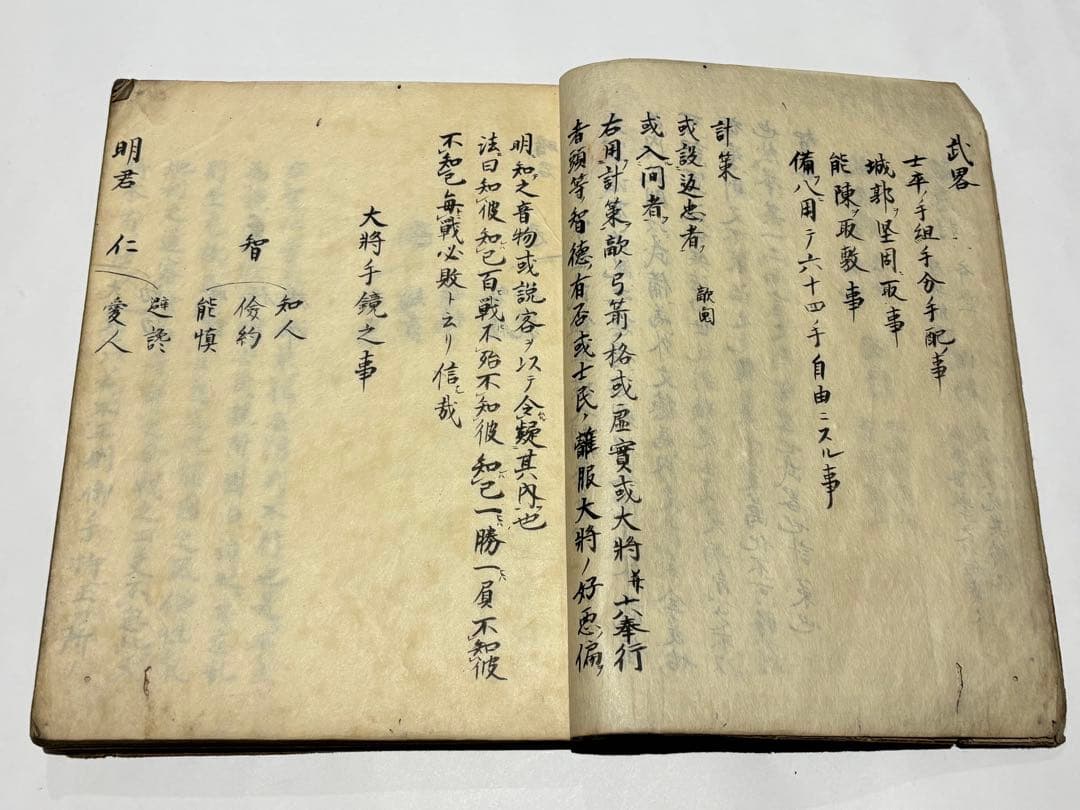 武畧
士卒ノ手組手分手配ノ事
城郭ヲ坚固ニ取事
能陳ヲ取敷事
備八ヲ用テ六十四手自由ニスル事
計策
或設返忠者ヲ
或入间者ヲ
右用計策ヲ敵ノ弓箭ノ格或虚實或大將并十六奉行
者頭等ノ智德ノ有否或士民ノ離服大將ノ好悪ノ偏ヲ
明知之音物或說客ヲ以テ令疑其内ヲ也
法曰知彼知己百戰不殆不知彼知己一勝一負不知彼
不知己每戰必敗ト云リ信哉
大將手鏡之事
智
知人
儉約
能慎
明君
仁
避讒
愛人